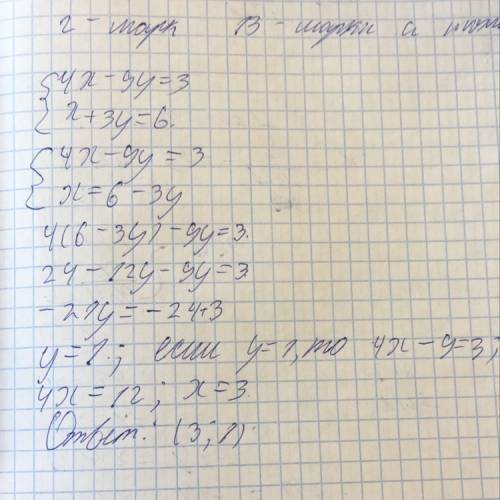 2 - марк В - марки и
{4x - 9y = 3
x + 3y = 6.
{4x - 9y = 3
x = 6 - 3y
4(6 - 3y) - 9y = 3.
24 - 12y - 9y = 3
-21y = -24+3
y = 1.; если y = 1, то 4x - 9 = 3;
4x = 12; x = 3.
Ответ: (3; 1)